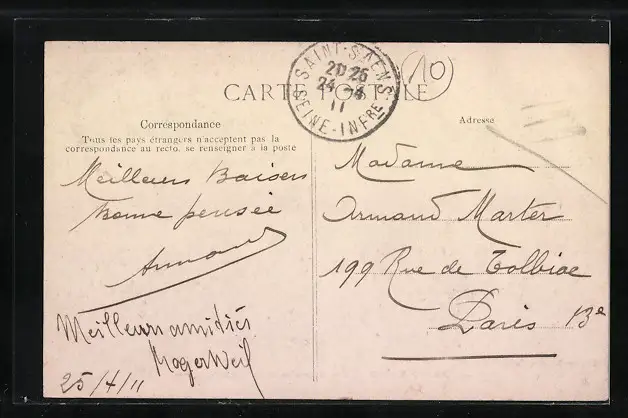 CARTE POSTALE
SAINT-SAENS
21 25
24 -4
11
SEINE-INFRE
10
Correspondance
Tous les pays étrangers n'acceptent pas la
correspondance au recto. se renseigner à la poste
Adresse
Meilleurs Baisers
bonne pensée
Armand
Meilleurs amitiés
Roger Weil
25/4/11
Madame
Armand Marter
199 Rue de Tolbiac
Paris 13e